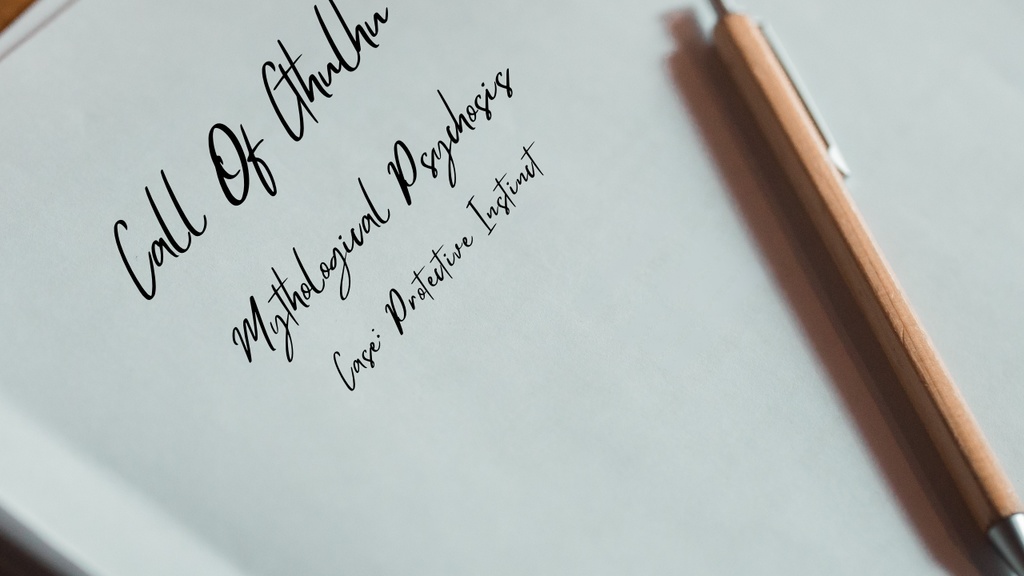 Call Of Cthulhu
Mythological Psychosis
Case: Protective Instinct